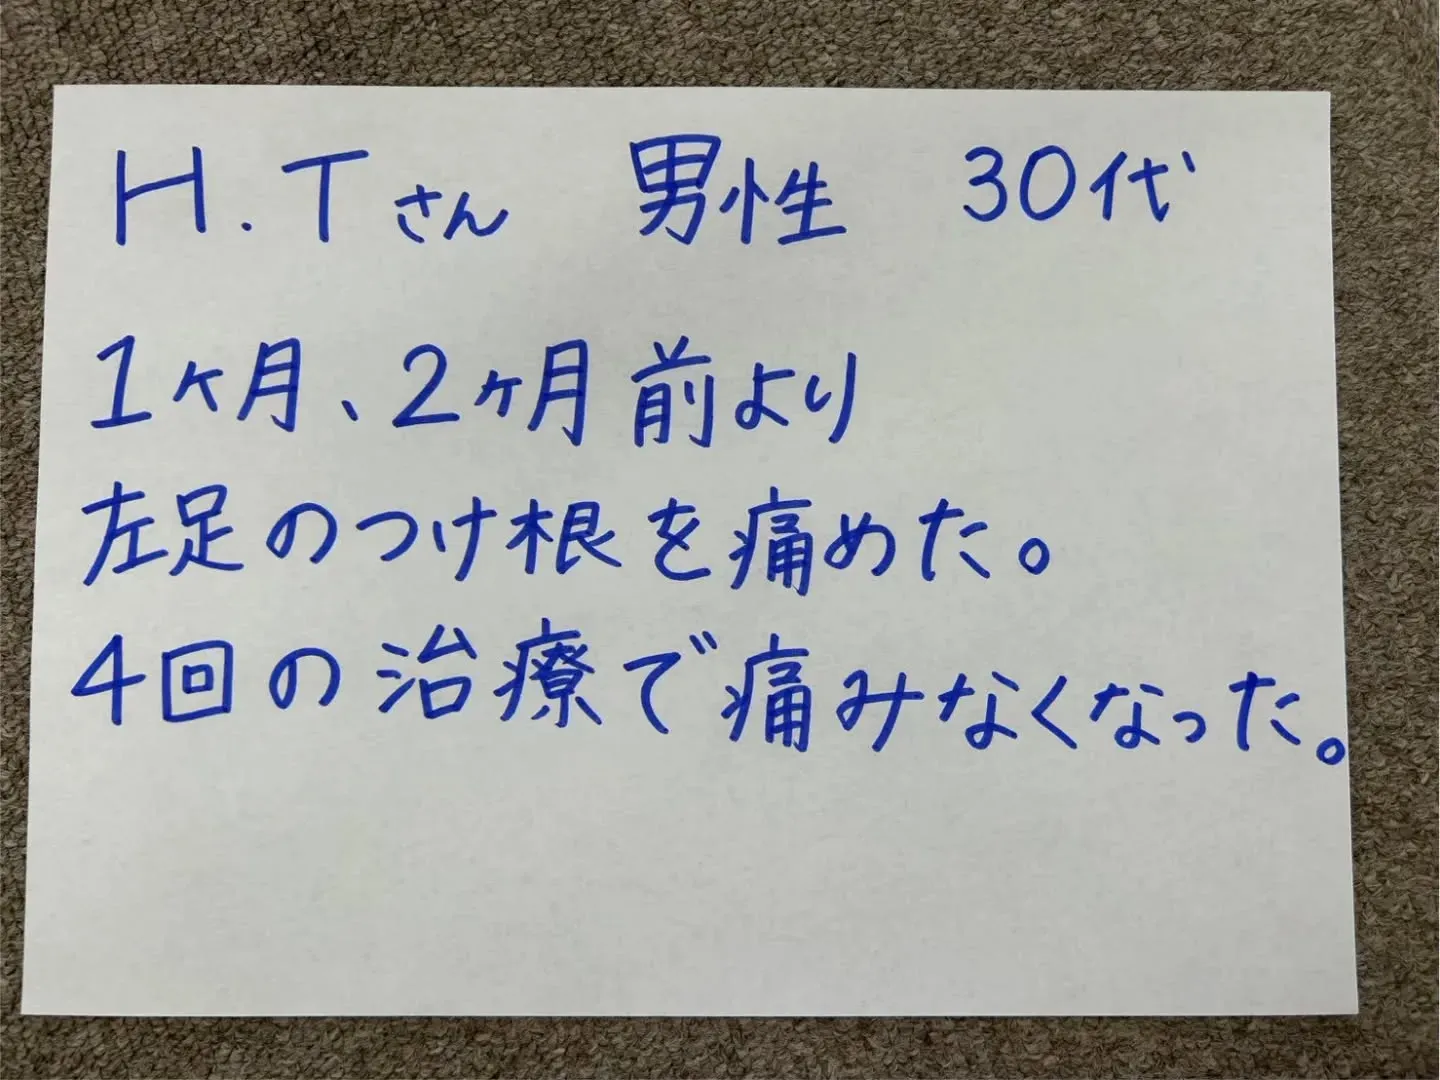 H.Tさん 男性 30代
1ヶ月、2ヶ月前より
左足のつけ根を痛めた。
4回の治療で痛みなくなった。